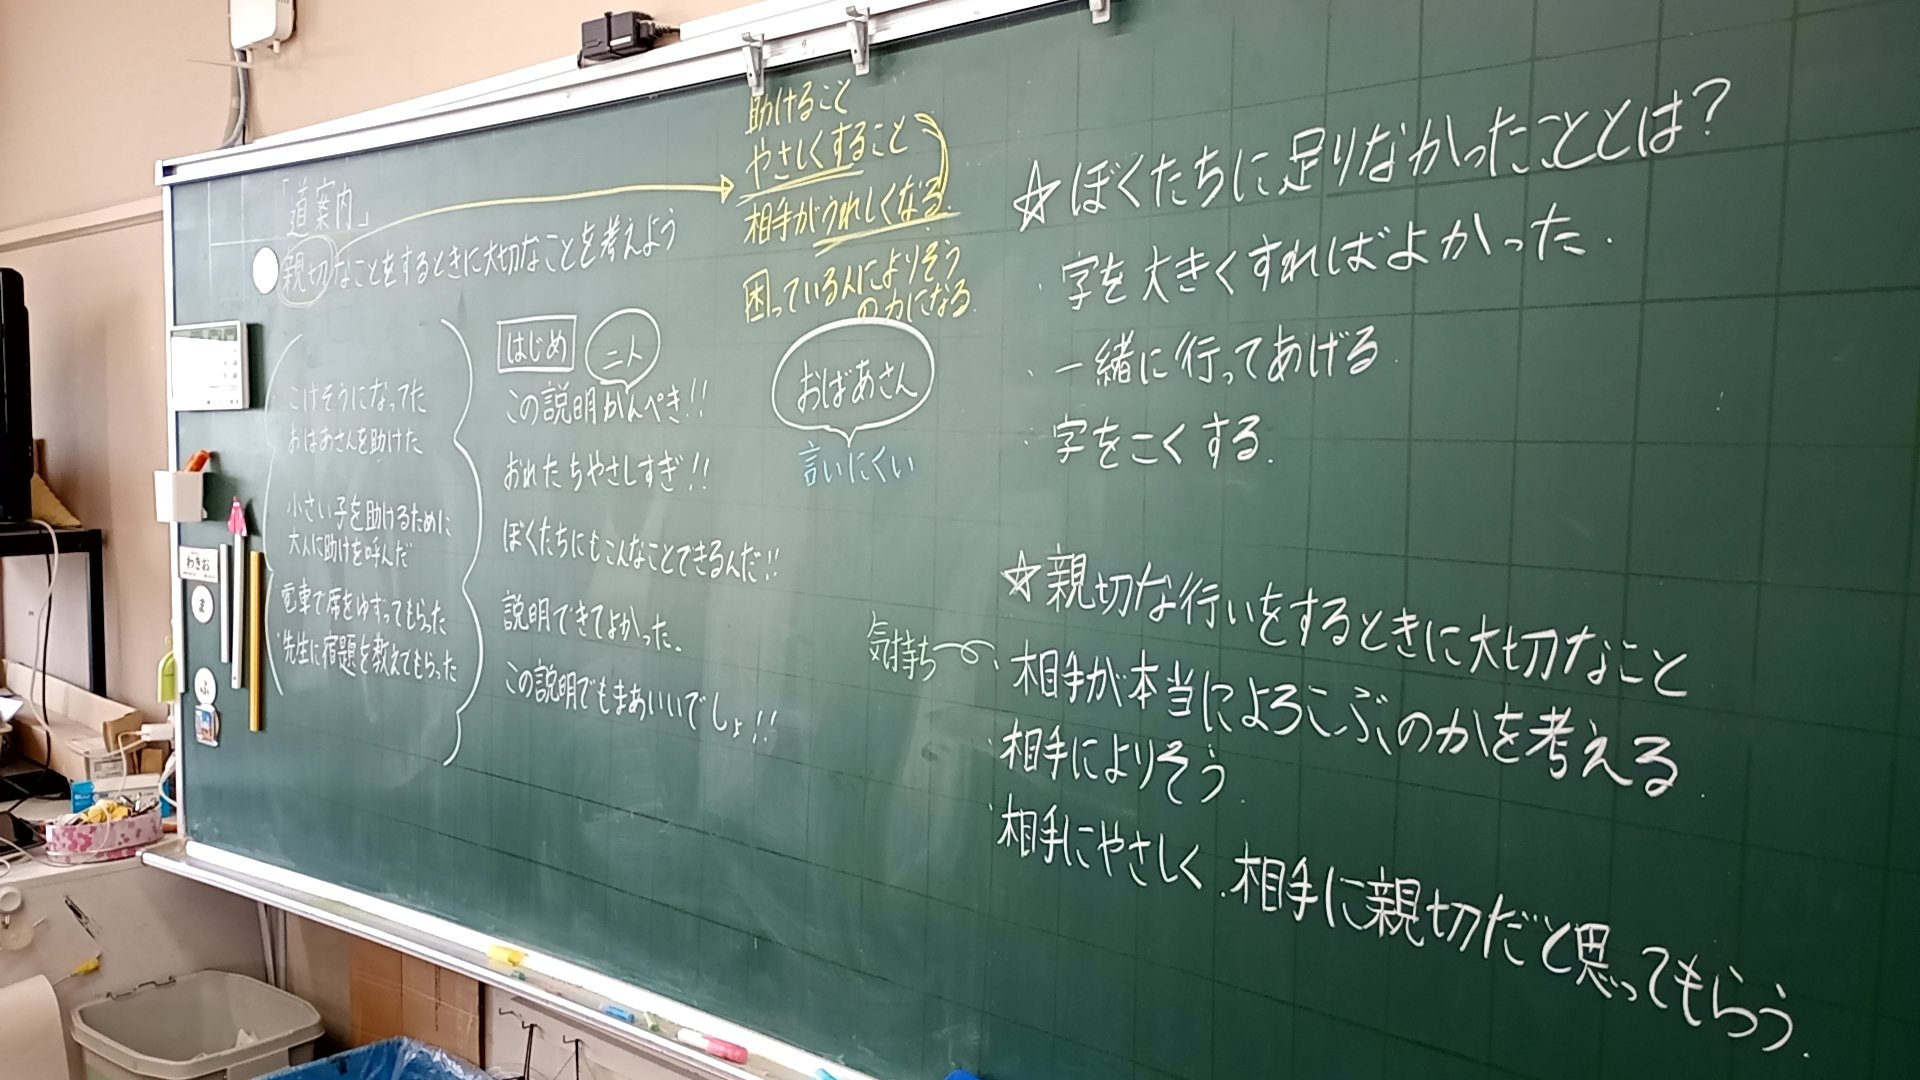 「道案内」
親切なことをするときに大切なことを考えよう
助けること
やさしくすること
相手がうれしくなる.
困っている人によりそう
の力になる.
こけそうになってた
おばあさんを助けた
小さい子を助けるために
大人に助けを呼んだ
電車で席をゆずってもらった
先生に宿題を教えてもらった
はじめ
二人
この説明かんぺき!!
おれたちやさしすぎ!!
ぼくたちにもこんなことできるんだ!!
説明できてよかった。
この説明でもまあいいでしょ!!
おばあさん
言いにくい
☆ぼくたちに足りなかったこととは?
・字を大きくすればよかった.
・一緒に行ってあげる.
・字をこくする.
☆親切な行いをするときに大切なこと
気持ち
・相手が本当によろこぶのかを考える.
・相手によりそう.
・相手にやさしく.相手に親切だと思ってもらう.
わきお
ま
ふ